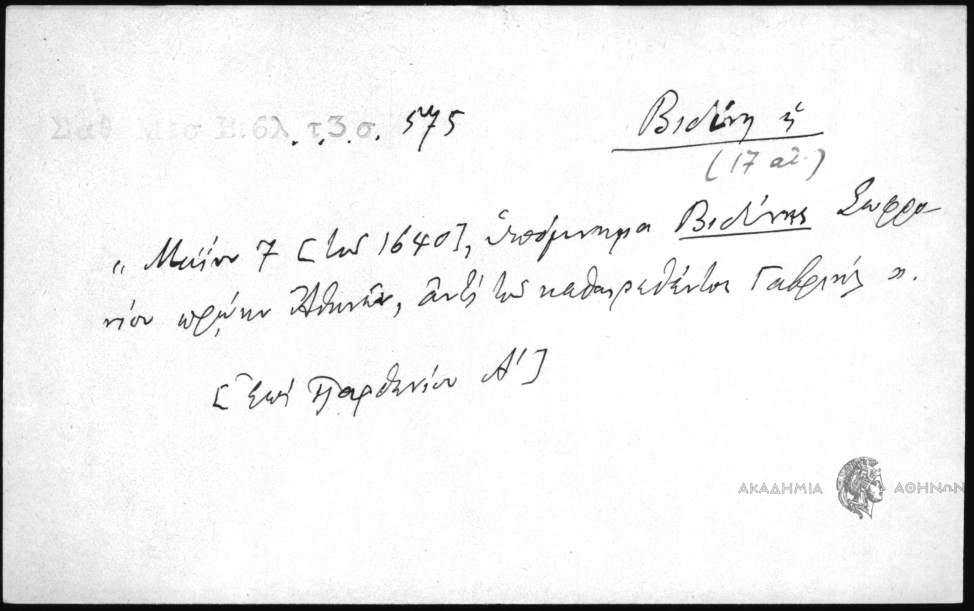 Σαθ Μεσ Βιβλ. τ.3 σ. 575
Βιδύνη ἡ
(17 αἰ.)
« Μαΐου 7 [τοῦ 1640], ὑπόμνημα Βιδύνης Σωφρο-
νίου πρώην Ἀθηνῶν, ἀντὶ τοῦ καθαιρεθέντος Γαβριὴλ ».
[Ἐπὶ Παρθενίου Α΄]
ΑΚΑΔΗΜΙΑ ΑΘΗΝΩΝ